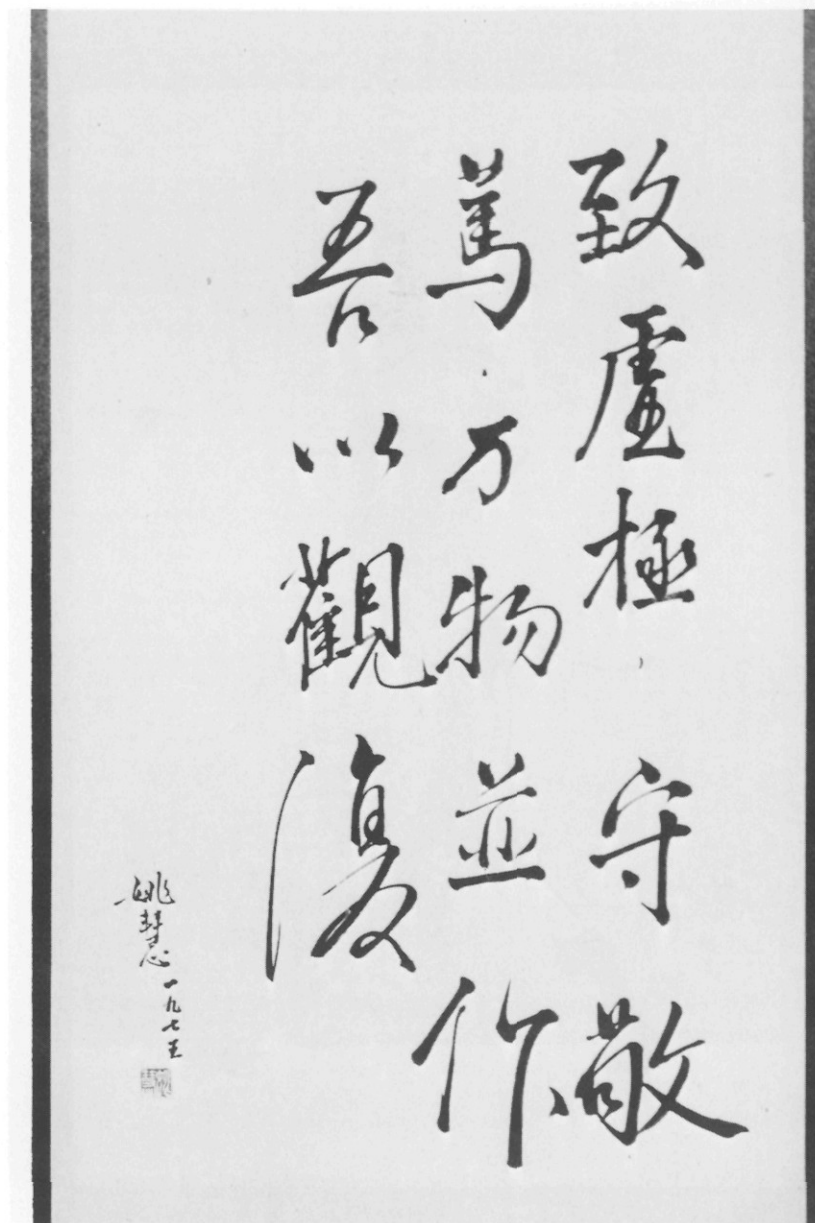 致虛極守敬
篤万物並作
吾以觀復
姚慧一九七五